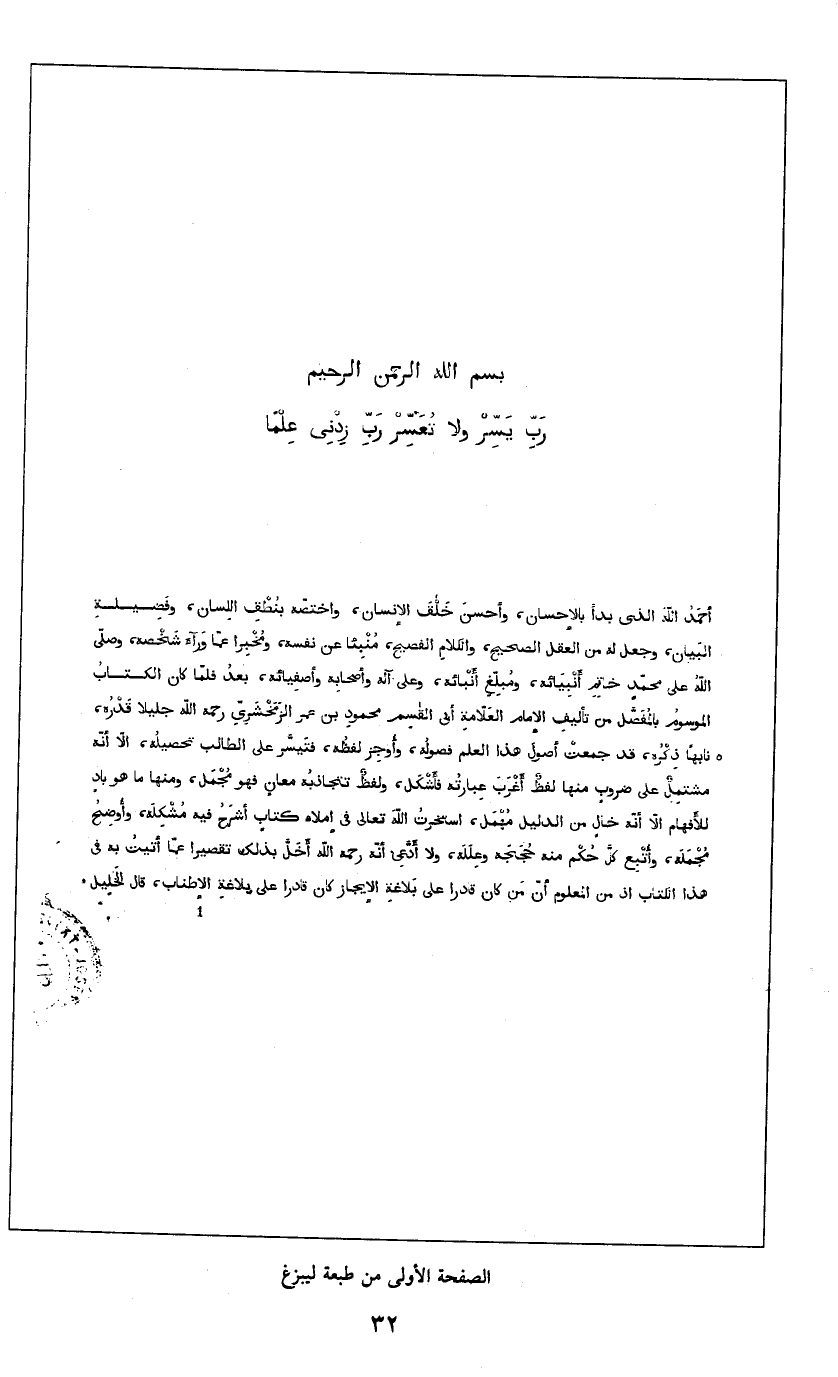 بسم الله الرحمن الرحيم
رَبِّ يَسِّرْ ولا تُعَسِّرْ رَبِّ زِدْنِى عِلْمًا
أحمَدُ اللهَ الذى بدأ بالإحسان، وأحسنَ خَلْقَ الإنسان، واختصّه بنُطْقِ اللسان، وفَضِيلةِ
البَيان، وجعل له من العقل الصحيح، والكلامِ الفصيح، مُنْبِئا عن نفسه، ومُخْبِرا عمّا وَرآءَ شَخْصه، وصلّى
اللهُ على محمّدٍ خاتِمِ أَنْبِيَائه، ومُبلِّغِ أَنْبائه، وعلى آله وأصحابه وأصفيائه، بعدُ فلمّا كان الكتابُ
الموسومُ بالمُفَصَّل من تأليفِ الإمامِ العَلّامةِ أبى القٰسِم محمودِ بن عمر الزَمَخْشَرِىّ رحمه الله جليلا قَدْرُه،
٥ نابِهًا ذِكْرُه، قد جمعتْ أصولَ هذا العلم فصولُه، وأُوجِز لفظُه، فتَيسَّر على الطالب تحصيلُه، الّا أنّه
مشتمِلٌ على ضروبٍ منها لفظٌ أَغْرَبَ عبارتُه فأَشْكَل، ولفظٌ تتجاذبُه معانٍ فهو مُجْمَل، ومنها ما هو بادٍ
للأفهام الّا أنّه خالٍ من الدليل مُهْمَل، استخرتُ اللهَ تعالى فى إملاء كتاب أَشرَحُ فيه مُشْكِلَه، وأُوضِحُ
مُجْمَلَه، وأُتْبِع كلَّ حُكْم منه حُجَجَه وعِلَلَه، ولا أَدَّعِى أنّه رحمه الله أَخَلَّ بذلك تقصيرا عمّا أتيتُ به فى
هذا الكتاب اذ من المعلوم أنّ مَن كان قادرا على بَلاغةِ الإيجاز كان قادرا على بلاغةِ الإطناب، قال الخَليل
1
الصفحة الأولى من طبعة ليبزغ
٣٢